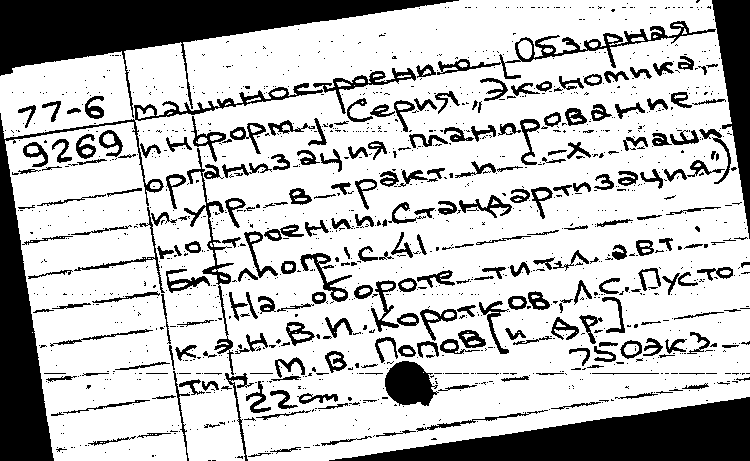 77-6
9269
машиностроению. [Обзорная
информ.]. Серия „Экономика,
организация, планирование
и упр. в тракт. и с.-х. маши-
ностроении„Стандартизация")
Библиогр.: с. 41.
На обороте тит. л. авт.:
к.э.н. В.И. Коротков, Л.С. Пусто-
тин, М. В. Попов [и др.].
22 cm. 750 экз.